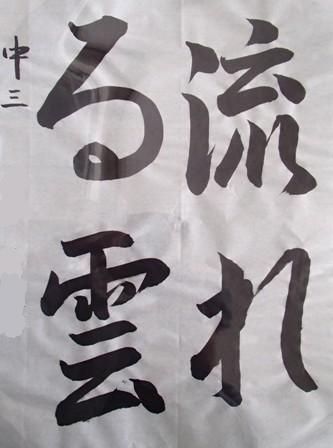 流れ
る雲
中三